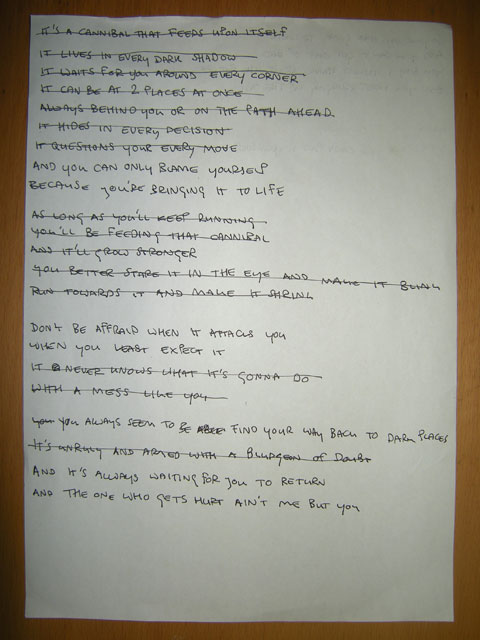 IT'S A CANNIBAL THAT FEEDS UPON ITSELF
IT LIVES IN EVERY DARK SHADOW
IT WAITS FOR YOU AROUND EVERY CORNER
IT CAN BE AT 2 PLACES AT ONCE
ALWAYS BEHIND YOU OR ON THE PATH AHEAD.
IT HIDES IN EVERY DECISION
IT QUESTIONS YOUR EVERY MOVE
AND YOU CAN ONLY BLAME YOURSELF
BECAUSE YOU'RE BRINGING IT TO LIFE
AS LONG AS YOU'LL KEEP RUNNING
YOU'LL BE FEEDING THAT CANNIBAL
AND IT'LL GROW STRONGER
YOU BETTER STARE IT IN THE EYE AND MAKE IT BLINK
RUN TOWARDS IT AND MAKE IT SHRINK
DON'T BE AFFRAID WHEN IT ATTACKS YOU
WHEN YOU LEAST EXPECT IT
IT NEVER KNOWS WHAT IT'S GONNA DO
WITH A MESS LIKE YOU
YOU YOU ALWAYS SEEM TO BE ABLE FIND YOUR WAY BACK TO DARK PLACES
IT'S UNRULY AND ARMED WITH A BLUDGEON OF DOUBT
AND IT'S ALWAYS WAITING FOR YOU TO RETURN
AND THE ONE WHO GETS HURT AIN'T ME BUT YOU